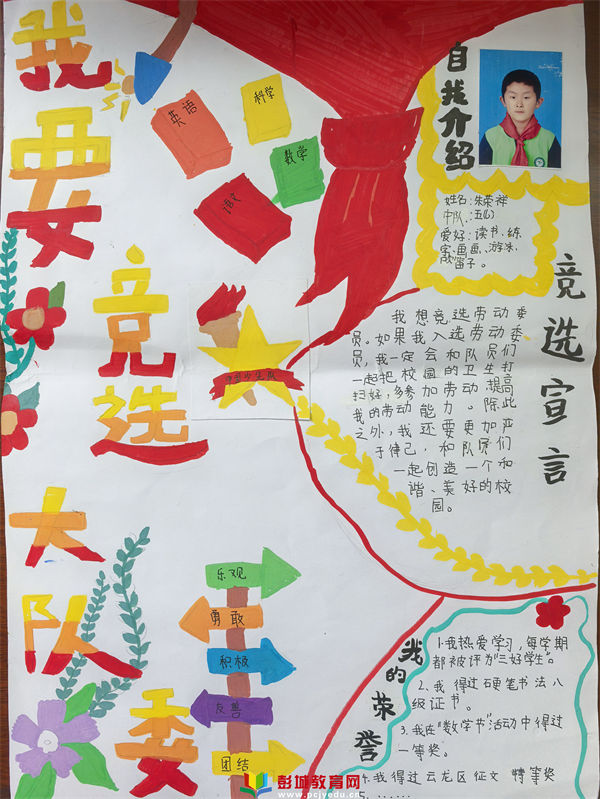 我要
竞选
大队委
英语
科学
数学
语文
中国少先队
自我介绍
姓名:朱荣祥
中队:五(1)
爱好:读书、练
字、画画、游泳、
吹笛子。
竞选宣言
我想竞选劳动委
员。如果我入选劳动委
员,我一定会和队员们
一起把校园的卫生打
扫好,多参加劳动,提高
我的劳动能力。除此
之外,我还要更加严
于律己,和队员们
一起创造一个和
谐、美好的校
园。
乐观
勇敢
积极
友善
团结
我的荣誉
1.我热爱学习,每学期
都被评为“三好学生”。
2.我得过硬笔书法八
级证书。
3.我在“数学节”活动中得过
一等奖。
4.我得过云龙区征文 特等奖
5.......
彭城教育网
www.pcjyedu.cn